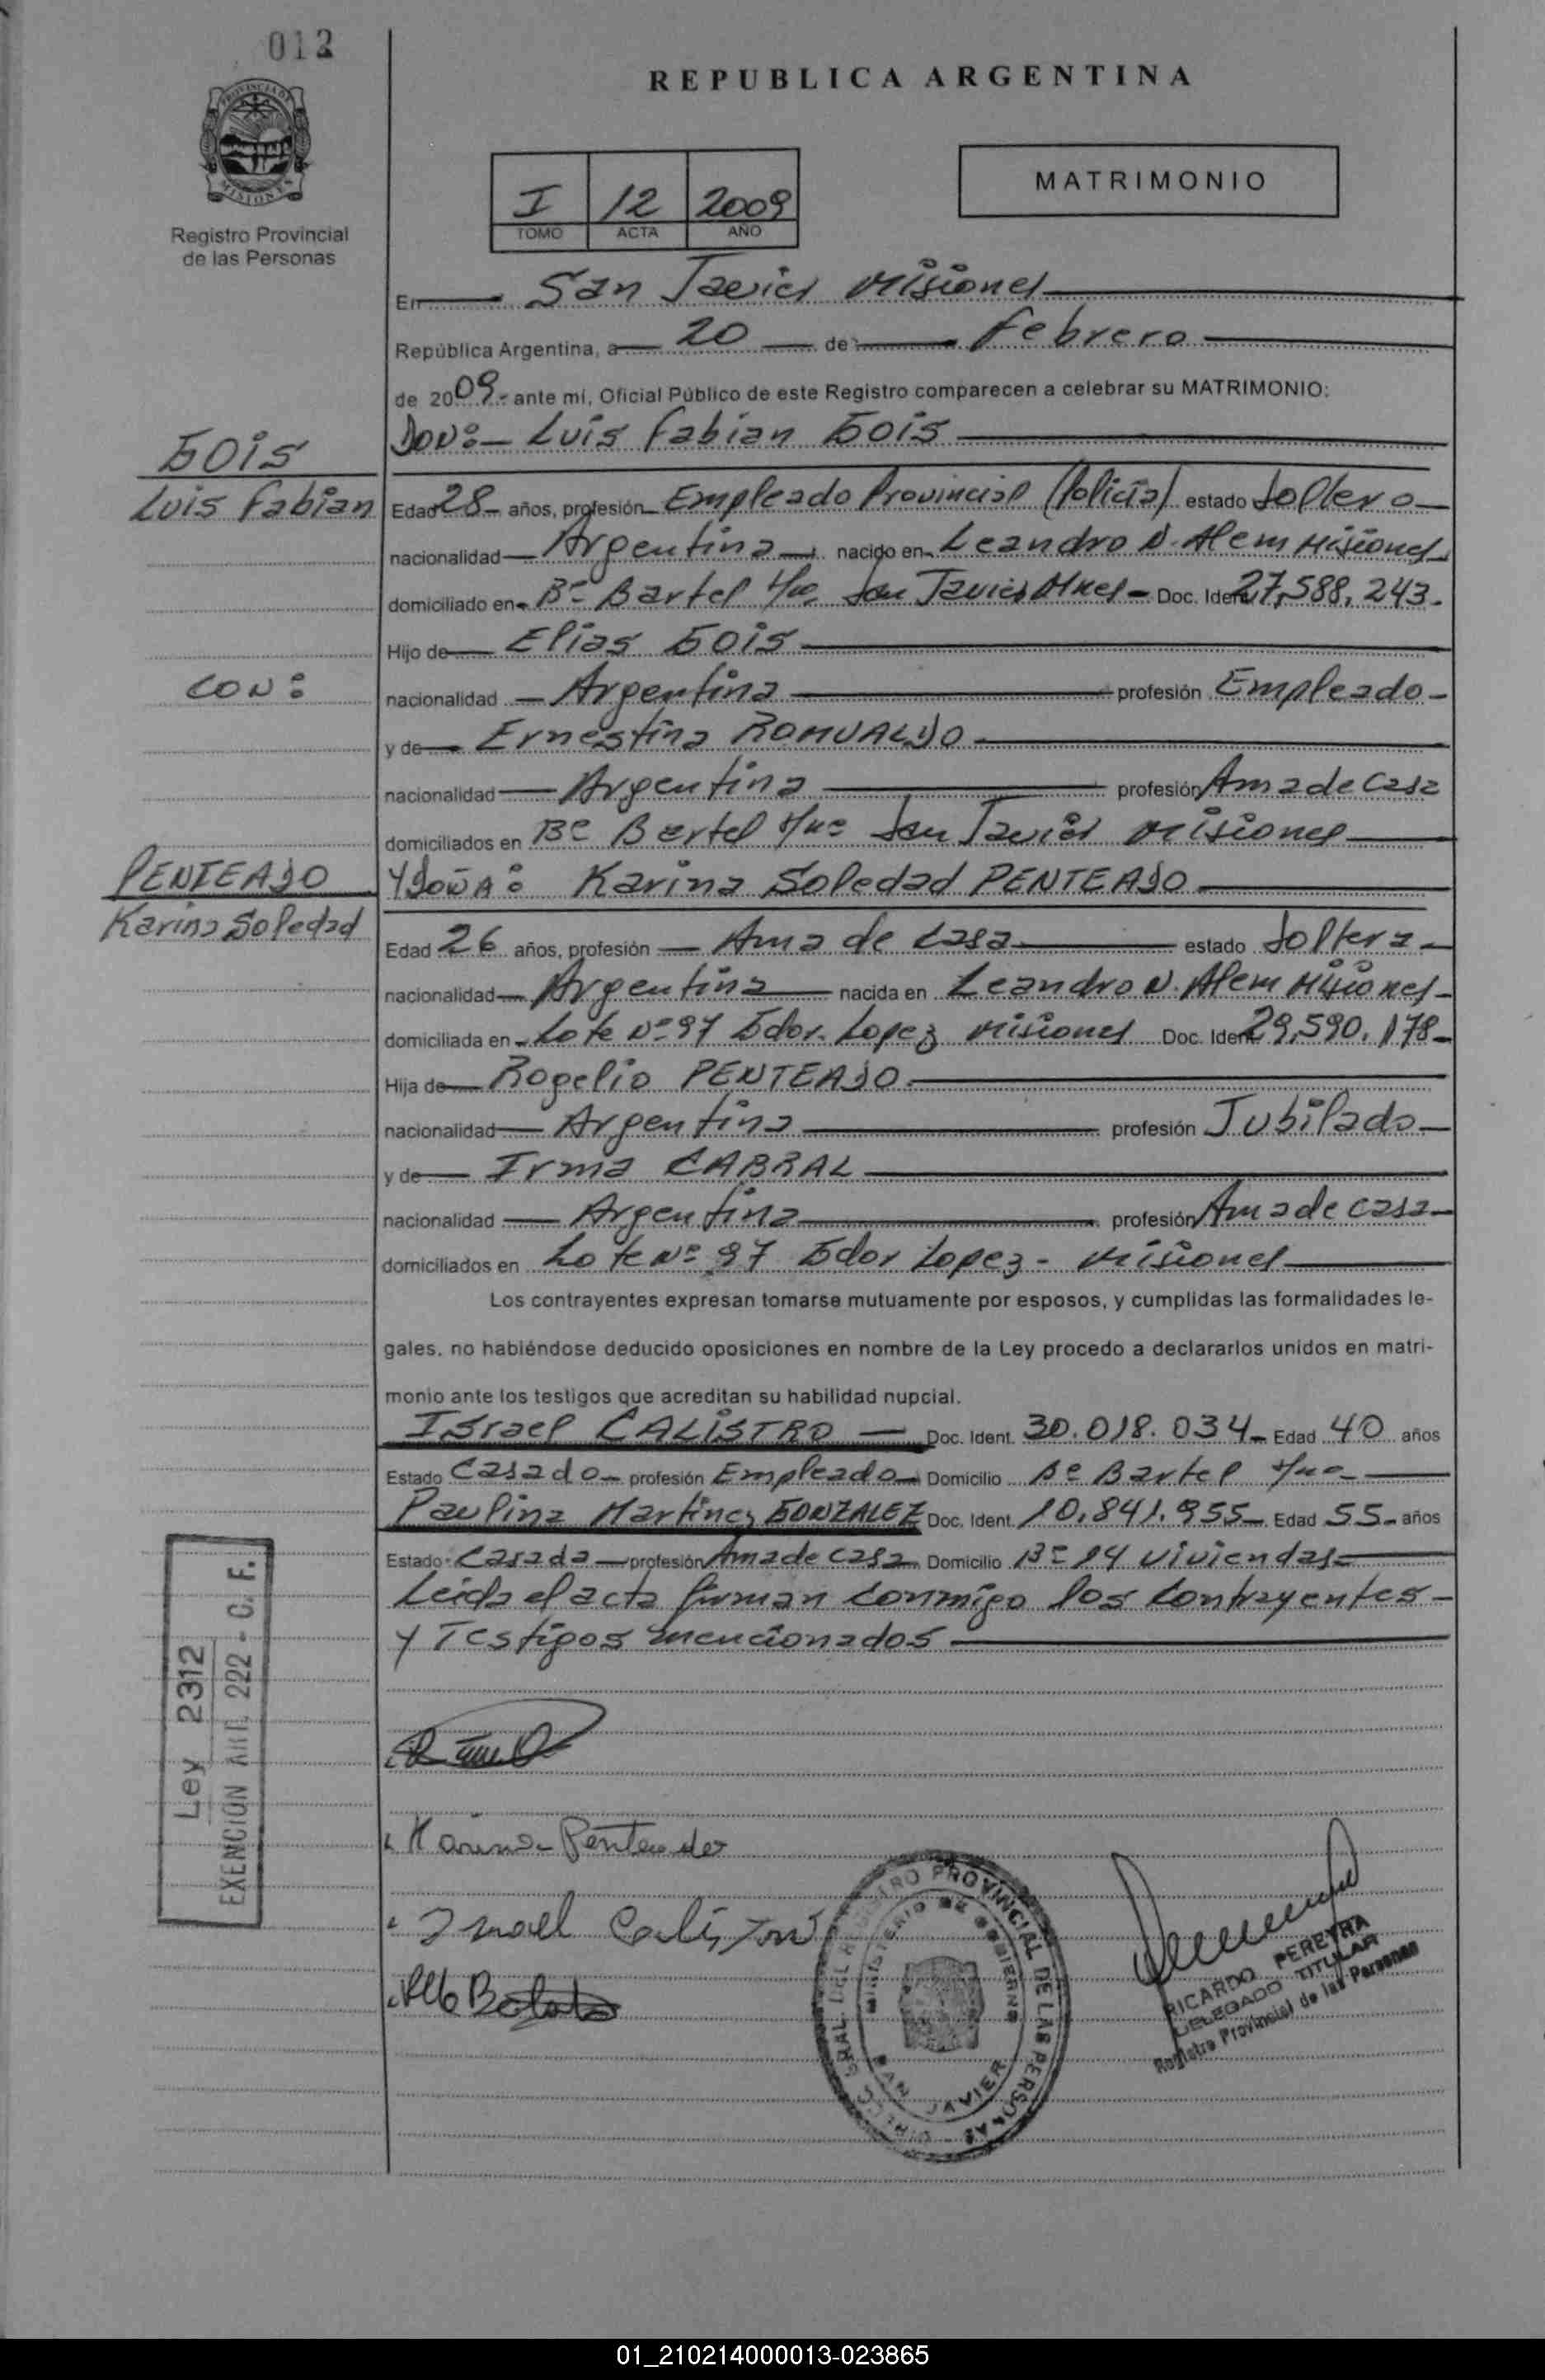 012
REPUBLICA ARGENTINA
PROVINCIA DE MISIONES
Registro Provincial
de las Personas
I 12 2009
TOMO ACTA AÑO
MATRIMONIO
En San Javier Misiones
República Argentina, a 20 de Febrero
de 2009.- ante mi, Oficial Público de este Registro comparecen a celebrar su MATRIMONIO:
GOIS
Luis Fabian
DON:- Luis Fabian GOIS
Edad 28 años, profesión Empleado Provincial (Policía) estado Soltero
nacionalidad Argentina nacido en Leandro N. Alem Misiones
domiciliado en Bº Bartel San Javier Mnes Doc. Ident. 27,588,243.
Hijo de Elias GOIS
CON:
nacionalidad Argentina profesión Empleado
y de Ernestina ROMUALDO
nacionalidad Argentina profesión Ama de casa
domiciliados en Bº Bartel San Javier Misiones
PENTEADO
Karina Soledad
Y DOÑA: Karina Soledad PENTEADO
Edad 26 años, profesión Ama de casa estado Soltera
nacionalidad Argentina nacida en Leandro N. Alem Misiones
domiciliada en Lote Nº 97 Gdor. Lopez Misiones Doc. Ident. 29,590,178
Hija de Rogelio PENTEADO
nacionalidad Argentina profesión Jubilado
y de Irma CABRAL
nacionalidad Argentina profesión Ama de casa
domiciliados en Lote Nº 97 Gdor Lopez - Misiones
Los contrayentes expresan tomarse mutuamente por esposos, y cumplidas las formalidades le-
gales, no habiéndose deducido oposiciones en nombre de la Ley procedo a declararlos unidos en matri-
monio ante los testigos que acreditan su habilidad nupcial.
Israel CALISTRO Doc. Ident. 30.018.034 Edad 40 años
Estado Casado profesión Empleado Domicilio Bº Bartel
Paulina Martinez GONZALEZ Doc. Ident. 10,841,955 Edad 55 años
Estado Casada profesión Ama de casa Domicilio Bº 14 viviendas
Leida el acta firman conmigo los contrayentes
y Testigos mencionados
Ley 2312
EXENCIÓN ART. 222 - C. F.
Karina Penteado
DIREC. GRAL. DEL REGISTRO PROVINCIAL DE LAS PERSONAS
MINISTERIO DE GOBIERNO
SAN JAVIER
RICARDO PEREYRA
DELEGADO TITULAR
Registro Provincial de las Personas
01_210214000013-023865